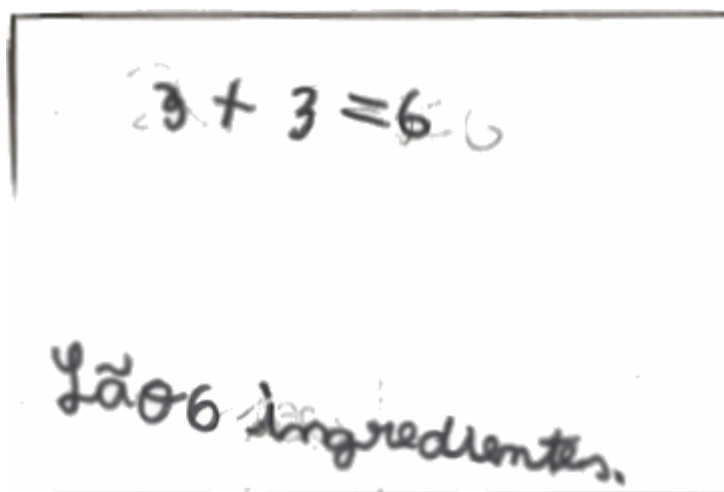 3 + 3 = 6
São 6 ingredientes.